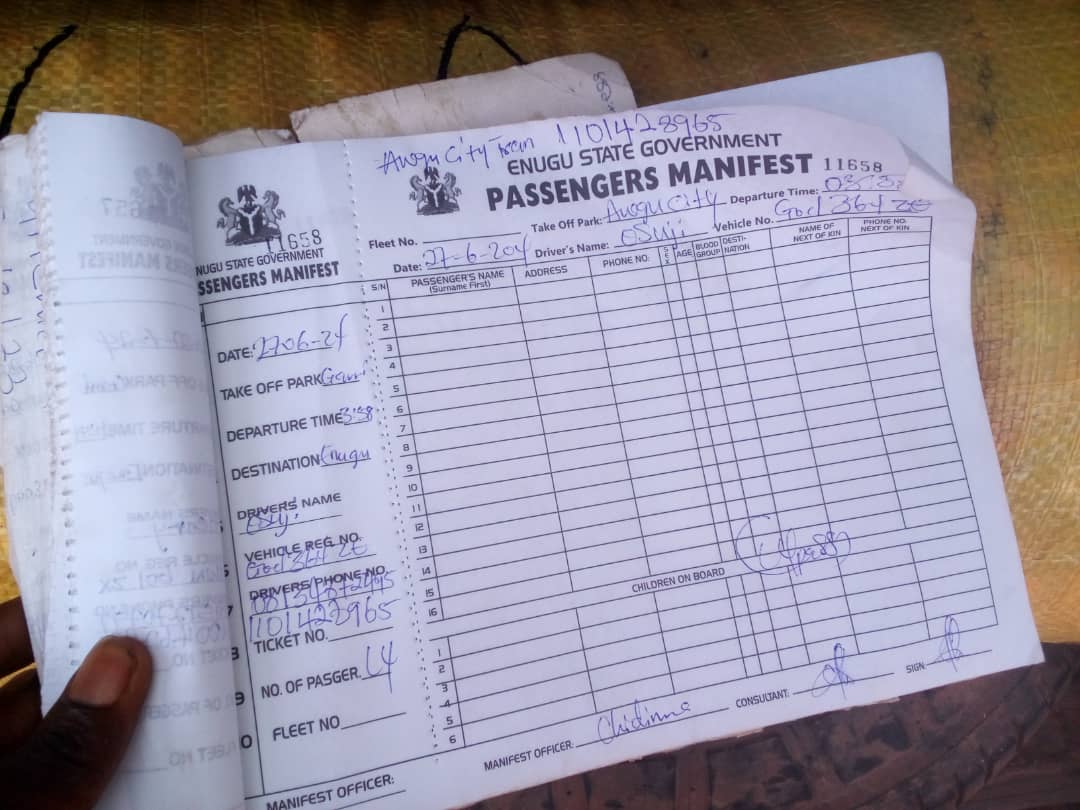 Awgu City Team 1101428965
ENUGU STATE GOVERNMENT
PASSENGERS MANIFEST 11658
Fleet No. Take Off Park: Awgu City Departure Time:
Date: 27-6-204 Driver's Name: eSuii Vehicle No. God 364 ZE
S/N PASSENGER'S NAME (Surname First) ADDRESS PHONE NO. SEX AGE BLOOD GROUP DESTINATION NAME OF NEXT OF KIN PHONE NO. NEXT OF KIN
1
2
3
4
5
6
7
8
9
10
11
12
13
14
15
16
CHILDREN ON BOARD
1
2
3
4
5
6
MANIFEST OFFICER: Chidinma CONSULTANT: SIGN
11658
ENUGU STATE GOVERNMENT
SSENGERS MANIFEST
DATE: 2706-24
TAKE OFF PARK
DEPARTURE TIME 3:38
DESTINATION Enugu
DRIVERS NAME
VEHICLE REG. NO.
God 364 ZE
DRIVERS PHONE NO.
1101422965
TICKET NO.
NO. OF PASGER. 14
FLEET NO
MANIFEST OFFICER: